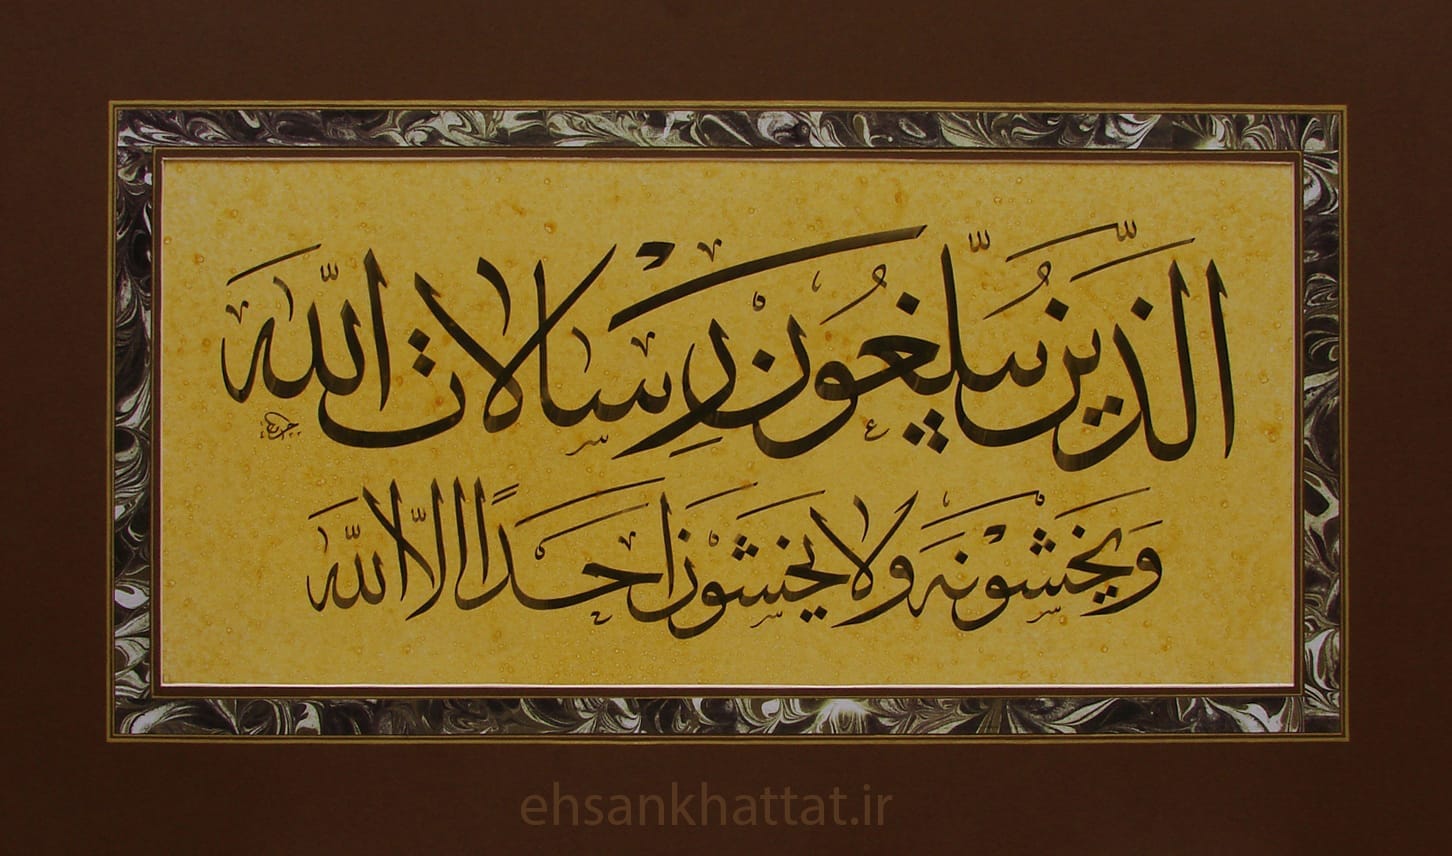 الَّذِينَ يُبَلِّغُونَ رِسَالَاتِ اللَّهِ
وَيَخْشَوْنَهُ وَلَا يَخْشَوْنَ أَحَدًا إِلَّا اللَّهَ
ehsankhattat.ir